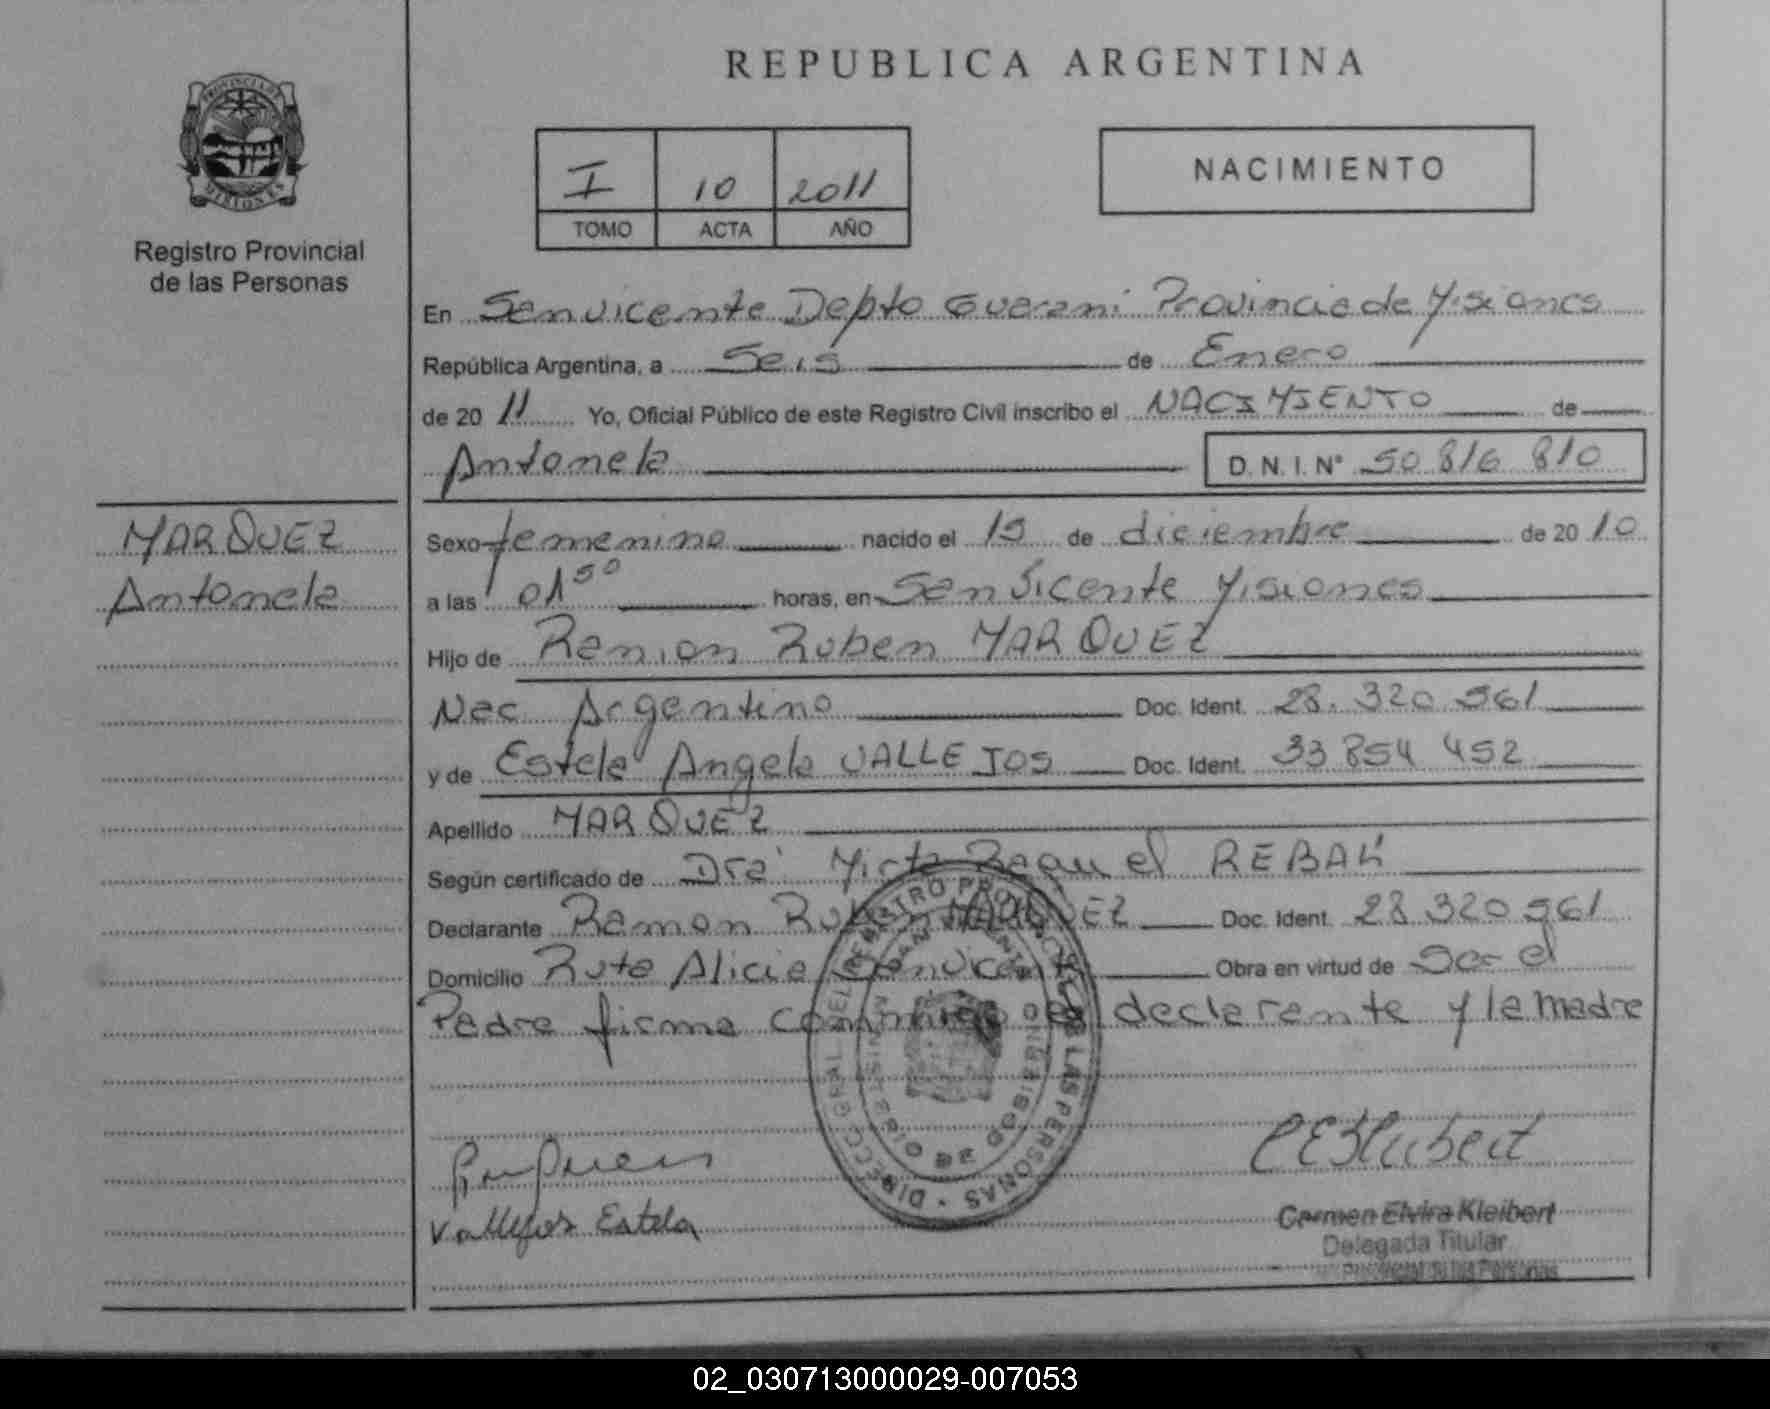 REPUBLICA ARGENTINA
PROVINCIA DE MISIONES
Registro Provincial
de las Personas
I 10 2011
TOMO ACTA AÑO
NACIMIENTO
En San Vicente Depto Guarani Provincia de Misiones
República Argentina, a Seis de Enero
de 20 11 Yo, Oficial Público de este Registro Civil inscribo el NACIMIENTO de
Antonela D. N. I. N° 50 816 810
MARQUEZ
Antonela
Sexo femenino nacido el 15 de diciembre de 20 10
a las 01 50 horas, en San Vicente Misiones
Hijo de Ramon Ruben MARQUEZ
Nac Argentino Doc. Ident. 28.320 961
y de Estela Angela VALLEJOS Doc. Ident. 33 854 452
Apellido MARQUEZ
Según certificado de Dra Mirta Raquel
Declarante Ramon Ruben MARQUEZ Doc. Ident. 28 320 961
Domicilio Ruta Alicia San Vicente Obra en virtud de Ser el
Padre firma conmigo el declarante y la madre
DIRECC. GRAL. DEL REGISTRO PROVINCIAL DE LAS PERSONAS
Vallejos Estela
Carmen Elvira Kleibert
Delegada Titular
Provincial de las Personas
02_030713000029-007053